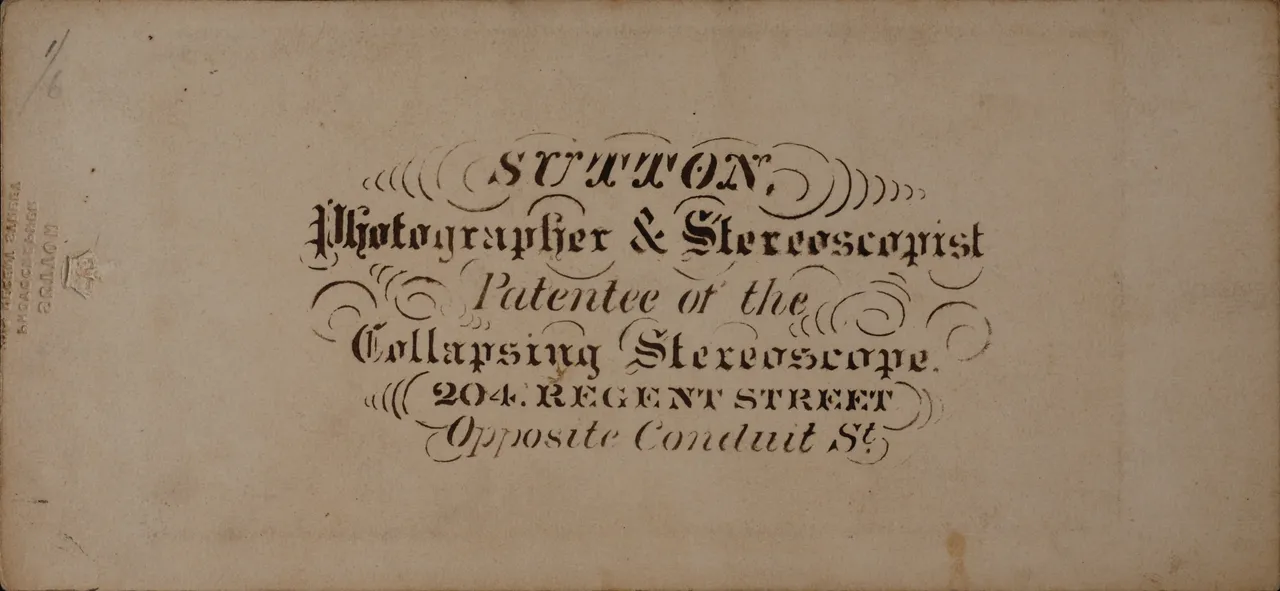 1/6
SUTTON,
Photographer & Stereoscopist
Patentee of the
Collapsing Stereoscope.
204. REGENT STREET
Opposite Conduit St.